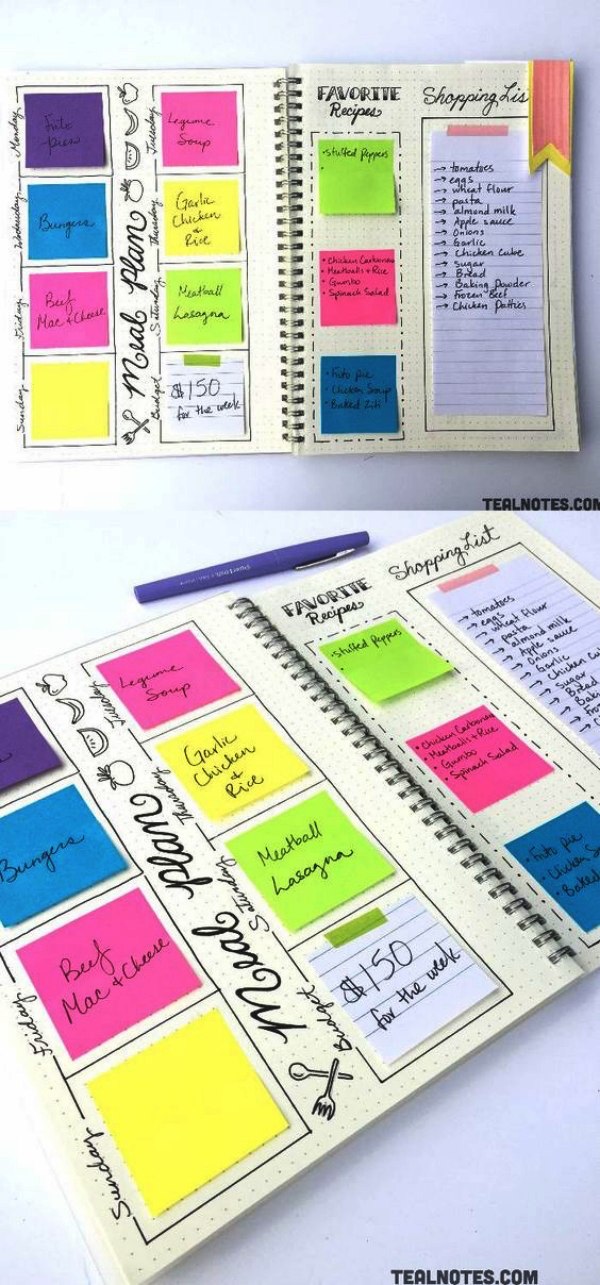 Monday
Frito
pies
Tuesday
Legume
Soup
Wednesday
Bungers
Thursday
Garlic
Chicken
&
Rice
Friday
Beef
Mac + Cheese
Saturday
Meatball
Lasagna
Sunday
Meal Plan
Budget
$150
for the week
FAVORITE
Recipes
• Stuffed Peppers
•
• Chicken Carbonara
• Meatballs + Rice
• Gumbo
• Spinach Salad
• Frito pie
• Chicken Soup
• Baked Ziti
Shopping Lis
→ tomatoes
→ eggs
→ wheat flour
→ pasta
→ almond milk
→ Apple sauce
→ Onions
→ Garlic
→ Chicken Cube
→ Sugar
→ Bread
→ Baking Powder
→ Frozen Beef
→ Chicken Patties
TEALNOTES.COM
FAVORITE
Recipes
Shopping List
• Stuffed Peppers
•
• Chicken Carbonara
• Meatballs + Rice
• Gumbo
• Spinach Salad
• Frito pie
• Chicken So
• Baked
→ tomatoes
→ eggs
→ wheat flour
→ pasta
→ almond milk
→ Apple sauce
→ Onions
→ Garlic
→ Chicken Cu
→ Sugar
→ Bread
→ Baki
→ Fro
→ C
Tuesday
Legume
Soup
Thursday
Garlic
Chicken
&
Rice
Bungers
Saturday
Meatball
Lasagna
Friday
Beef
Mac + Cheese
Meal Plan
Budget
$150
for the week
Sunday
TEALNOTES.COM